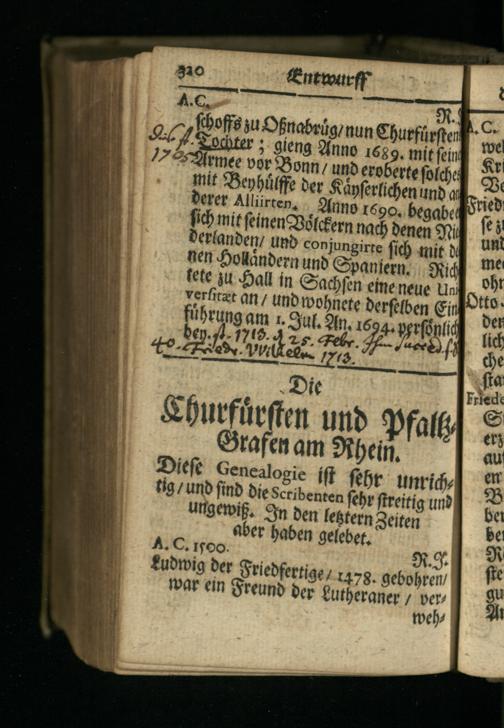 320 Entwurff
A. C. R. J.
schoffs zu Oßnabrüg/ nun Churfürsten
Tochter ; gieng Anno 1689. mit seine
1705 Armee vor Bonn/ und eroberte solches
mit Beyhülffe der Käyserlichen und an
derer Alliirten. Anno 1690. begabe
sich mit seinen Völckern nach denen Nie
derlanden/ und conjungirte sich mit de
nen Holländern und Spaniern. Rich
tete zu Hall in Sachsen eine neue Uni
versitæt an/ und wohnete derselben Ein
führung am 1. Jul. An. 1694. persönlich
bey. st. 1713. d 25. Febr. Ihm succed.
40. Friedr. Wilhelm 1713.
Die
Churfürsten und Pfaltz-
Grafen am Rhein.
Diese Genealogie ist sehr unrich-
tig/ und sind die Scribenten sehr streitig und
ungewiß. In den letztern Zeiten
aber haben gelebet.
A. C. 1500. R. J.
Ludwig der Friedfertige/ 1478. gebohren/
war ein Freund der Lutheraner/ ver-
weh-
A. C.
wel
Kri
Ve
Fried
se zu
und
me
ohn
Otto
den
lich
che
sta
Friede
erz
auf
en
B
ber
be
ste
gu
An